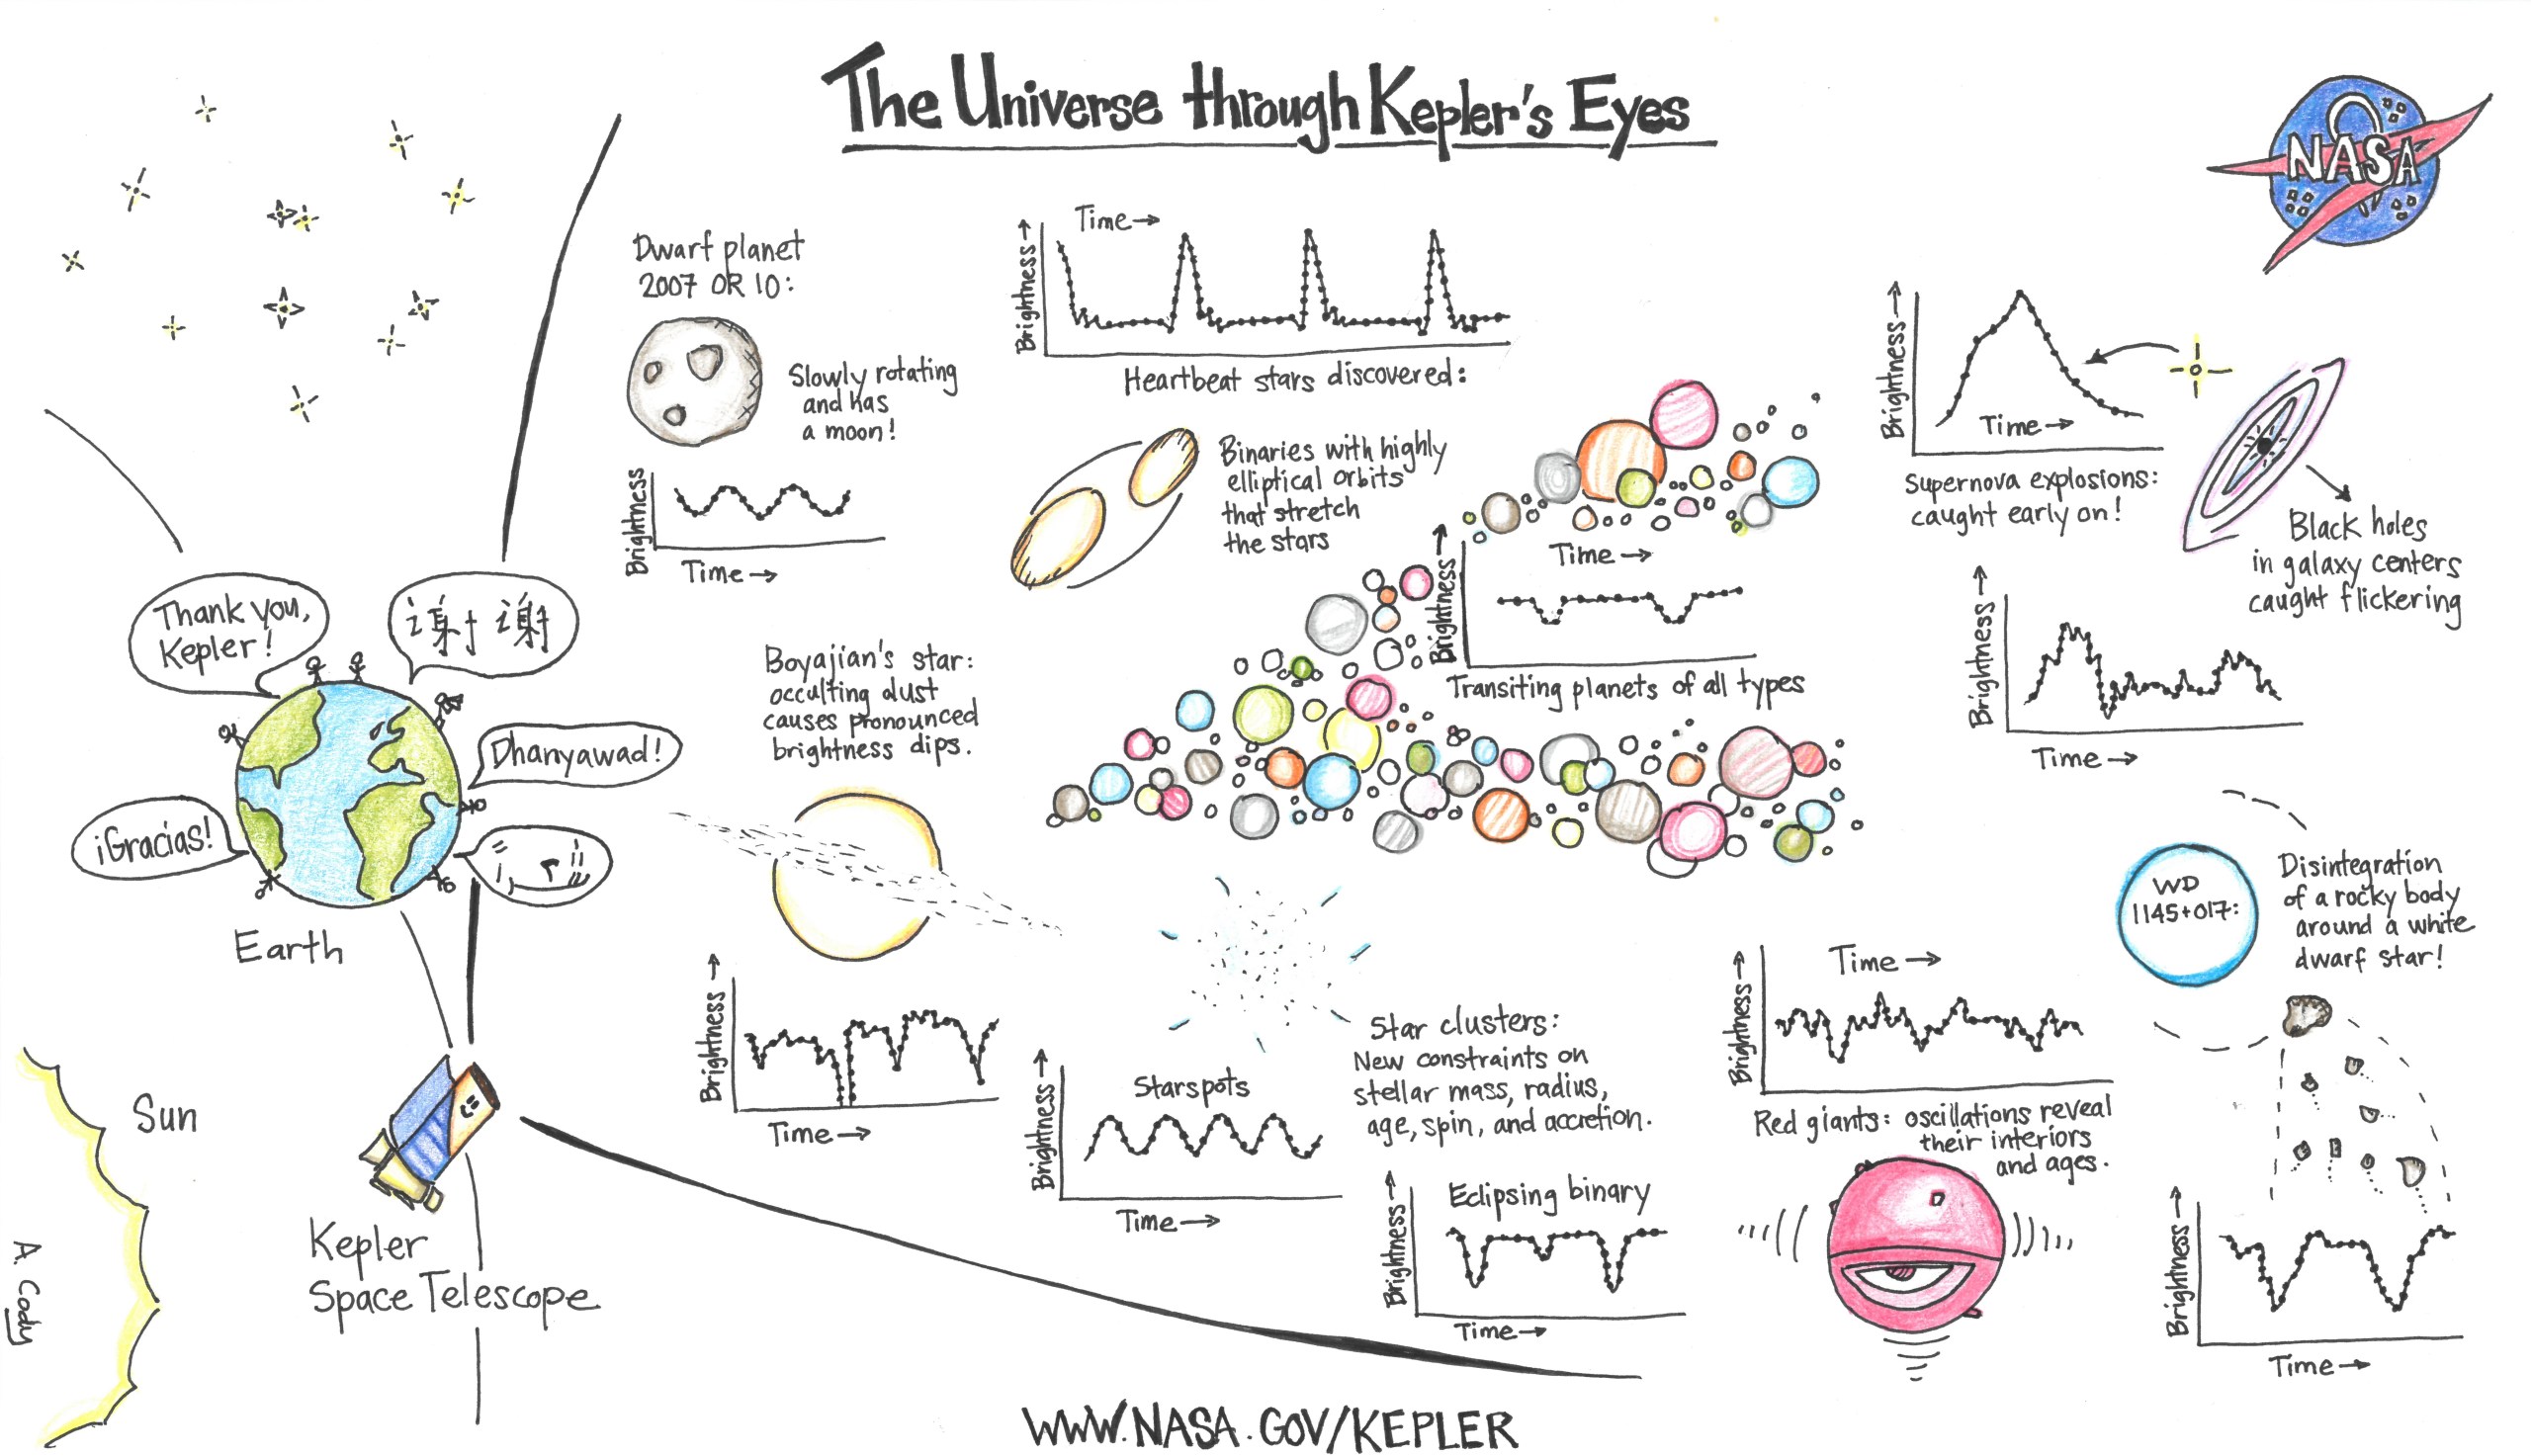 The Universe through Kepler's Eyes
NASA
Dwarf planet
2007 OR 10:
Slowly rotating
and has
a moon!
Brightness
Time →
Time →
Brightness →
Heartbeat stars discovered:
Binaries with highly
elliptical orbits
that stretch
the stars
Brightness →
Time →
Transiting planets of all types
Brightness →
Time →
Supernova explosions:
caught early on!
Black holes
in galaxy centers
caught flickering
Brightness →
Time →
Thank you,
Kepler!
谢谢
Dhanyawad!
¡Gracias!
Earth
Sun
Kepler
Space Telescope
A. Cody
Boyajian's star:
occulting dust
causes pronounced
brightness dips.
Brightness →
Time →
Starspots
Brightness →
Time →
Star clusters:
New constraints on
stellar mass, radius,
age, spin, and accretion.
Eclipsing binary
Brightness →
Time →
Time →
Brightness →
Red giants: oscillations reveal
their interiors
and ages.
WD
1145+017:
Disintegration
of a rocky body
around a white
dwarf star!
Brightness →
Time →
WWW.NASA.GOV/KEPLER